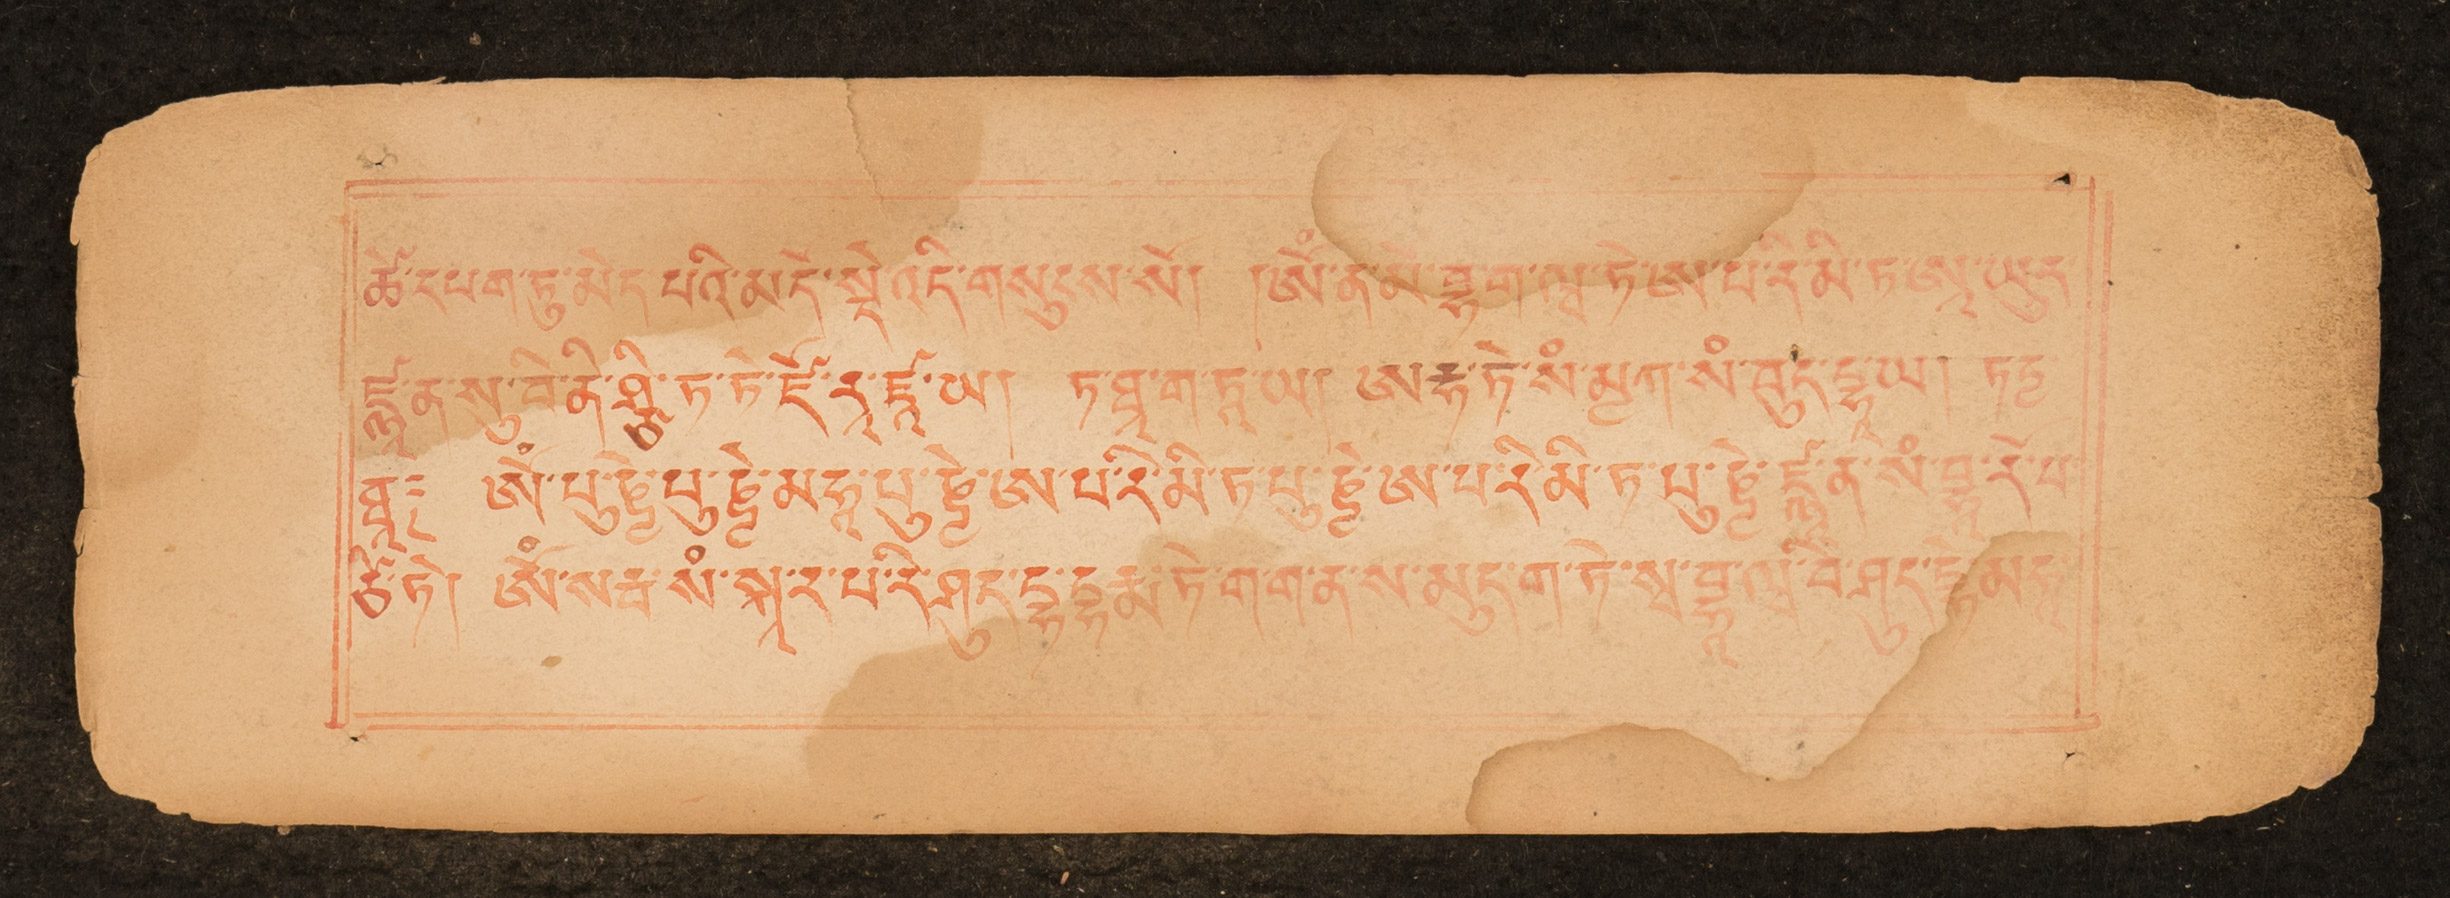 ཚེ་དཔག་ཏུ་མེད་པའི་མདོ་སྡེ་འདི་གསུངས་སོ། །ཨོཾ་ན་མོ་བྷ་ག་ཝ་ཏེ་ཨ་པ་རི་མི་ཏ་ཨཱ་ཡུར་
ཛྙཱ་ན་སུ་བི་ནི་ཤྩི་ཏ་ཏེ་ཛོ་རཱ་ཛཱ་ཡ། ཏ་ཐཱ་ག་ཏཱ་ཡ། ཨརྷ་ཏེ་སཾ་མྱཀ་སཾ་བུད་དྷཱ་ཡ། ཏདྱ་
ཐཱ༔ ཨོཾ་པུ་ཎྱེ་པུ་ཎྱེ་མ་ཧཱ་པུ་ཎྱེ་ཨ་པ་རི་མི་ཏ་པུ་ཎྱེ་ཨ་པ་རི་མི་ཏ་པུ་ཎྱེ་ཛྙཱ་ན་སཾ་བྷཱ་རོ་པ་
ཙི་ཏེ། ཨོཾ་སརྦ་སཾ་སྐཱ་ར་པ་རི་ཤུད་དྷ་དྷརྨ་ཏེ་ག་ག་ན་ས་མུད་ག་ཏེ་སྭ་བྷཱ་ཝ་བི་ཤུད་དྷེ་མ་ཧཱ་